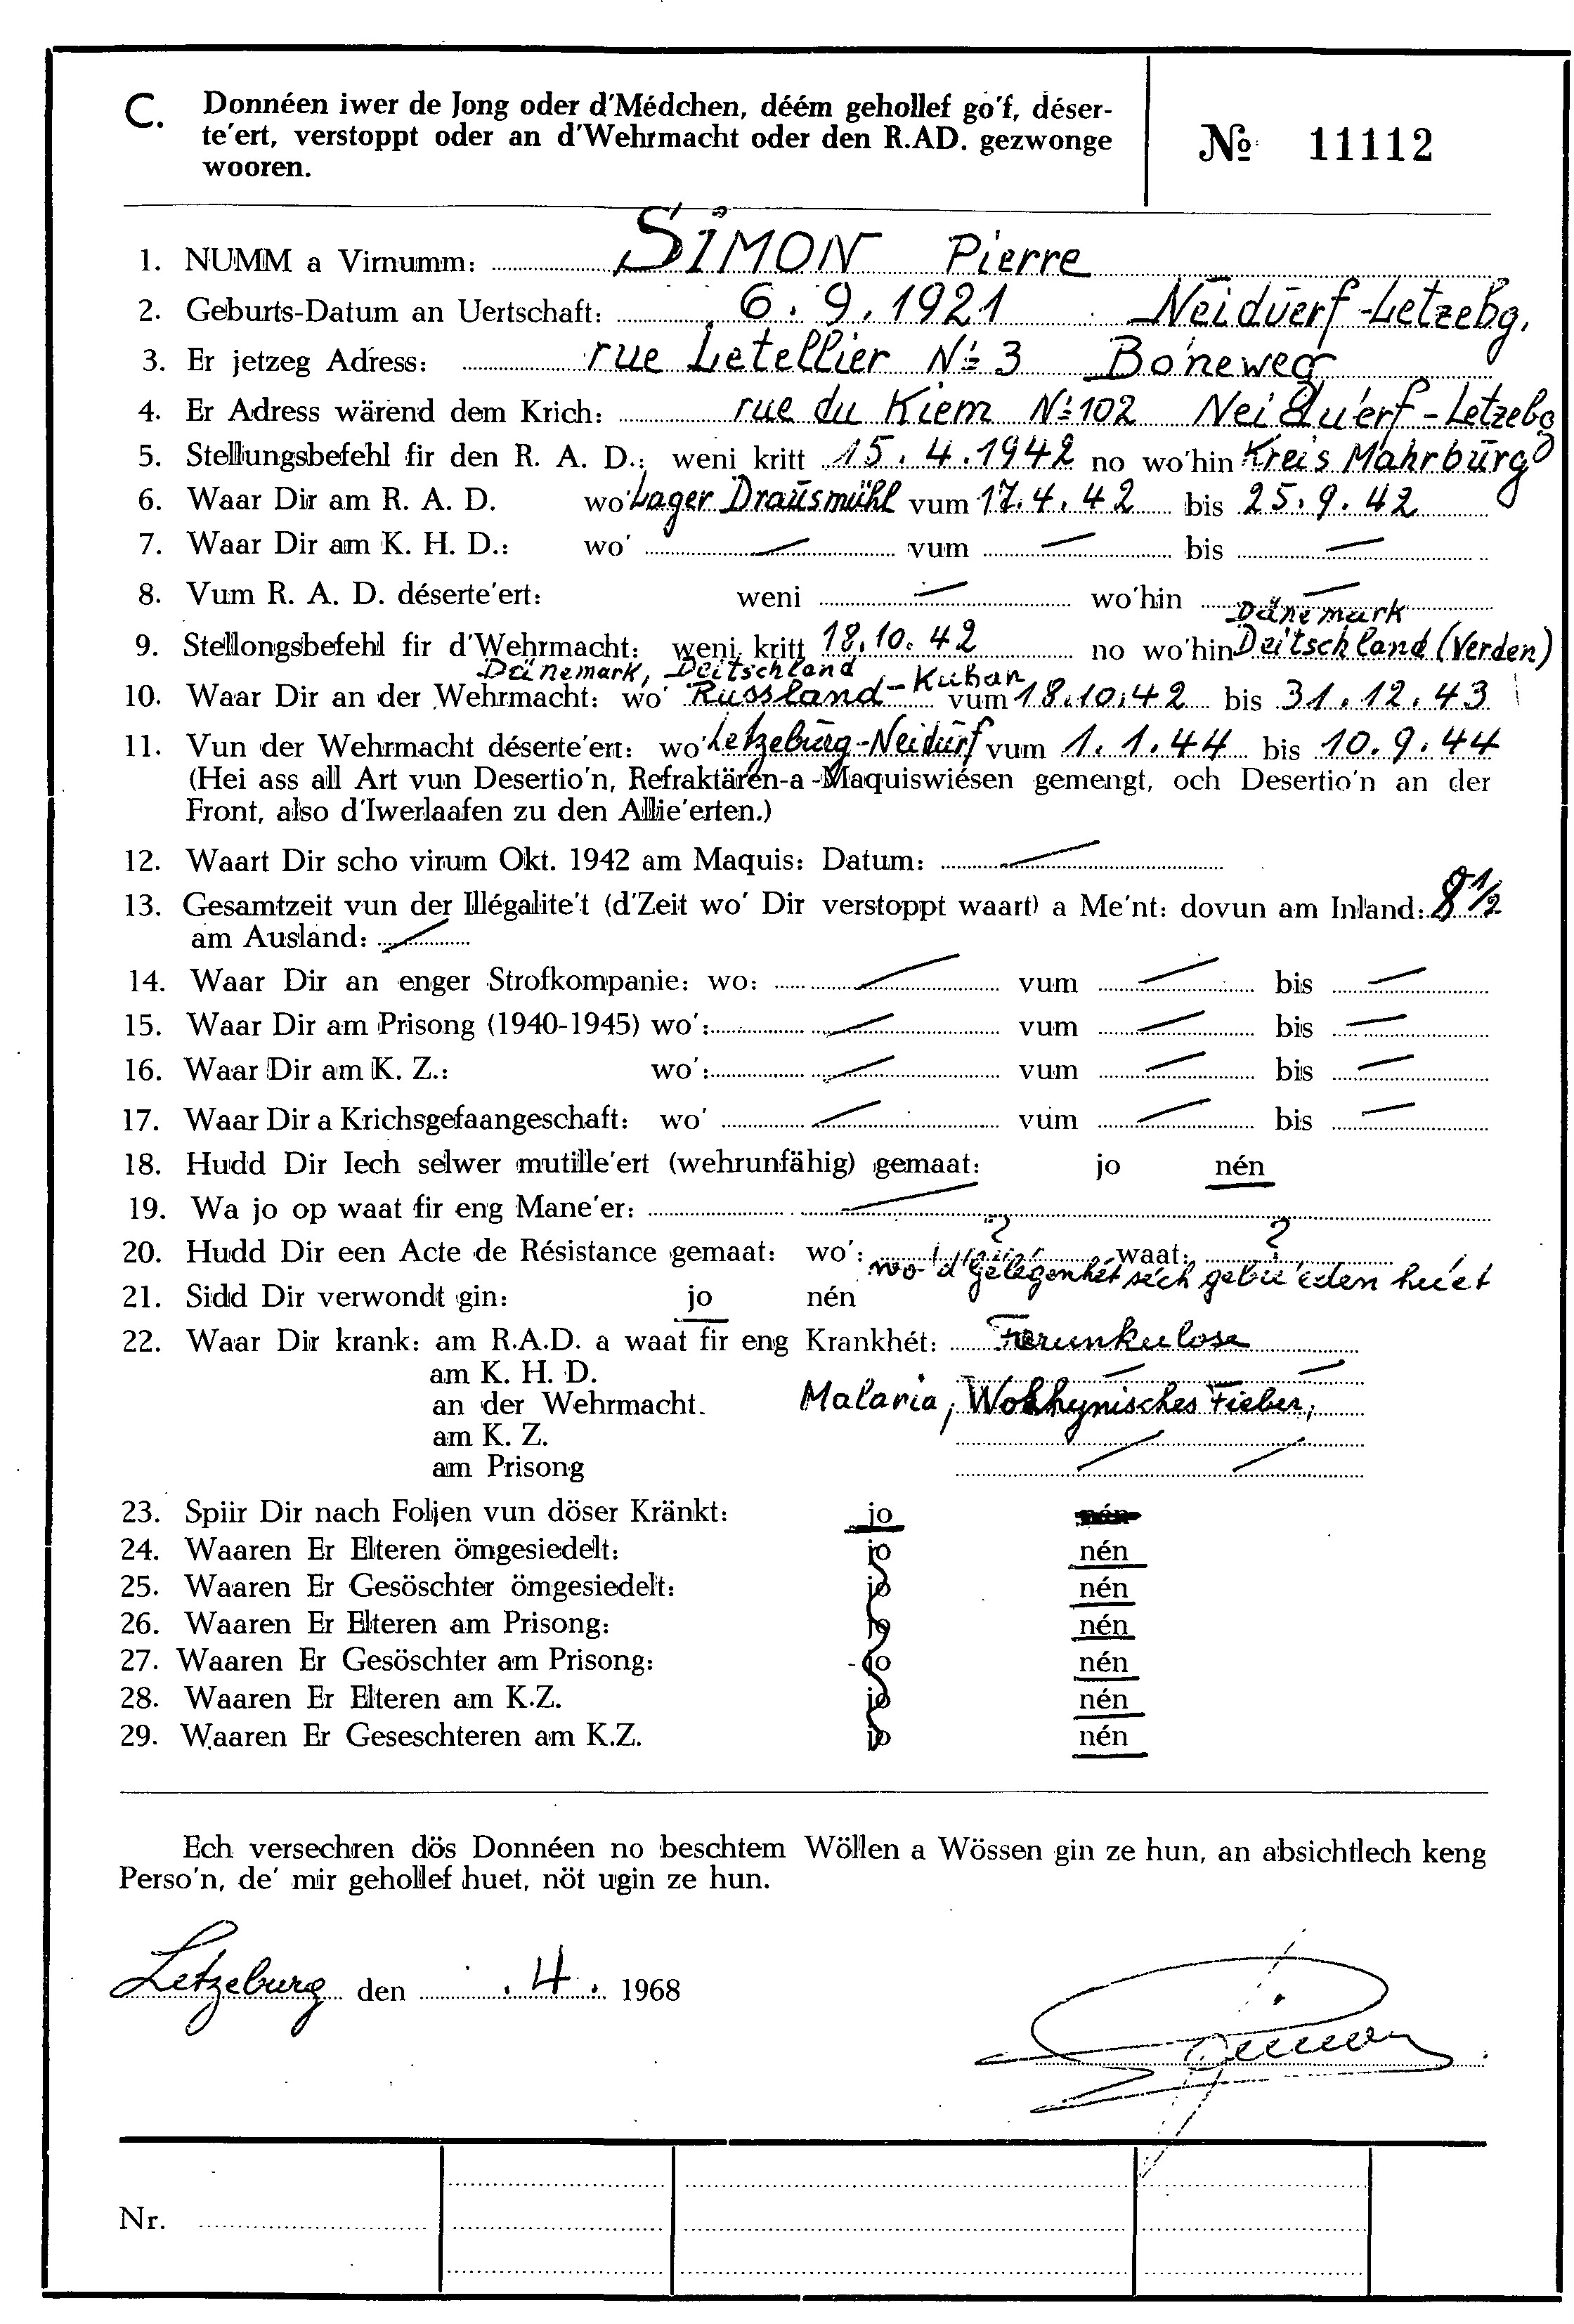 C. Donnéen iwer de Jong oder d'Médchen, déém gehollef go'f, déser-
te'ert, verstoppt oder an d'Wehrmacht oder den R.AD. gezwonge
wooren.
№ 11112
1. NUMM a Virnumm: SIMON Pierre
2. Geburts-Datum an Uertschaft: 6.9.1921 Neiduerf-Letzebg.
3. Er jetzeg Adress: rue Letellier N° 3 Bo'neweg
4. Er Adress wärend dem Krich: rue du Kiem N° 102 Neidu'erf-Letzebg
5. Stellungsbefehl fir den R. A. D.: weni kritt 15.4.1942 no wo'hin Kreis Mahrburg
6. Waar Dir am R. A. D. wo' Lager Drausmühl vum 17.4.42 bis 25.9.42
7. Waar Dir am K. H. D.: wo' — vum — bis —
8. Vum R. A. D. déserte'ert: weni — wo'hin —
Dänemark
9. Stellongsbefehl fir d'Wehrmacht: weni kritt 18.10.42 no wo'hin Deitschland (Verden)
Dänemark, Deitschland
10. Waar Dir an der Wehrmacht: wo' Russland-Kuban vum 18.10.42 bis 31.12.43
11. Vun der Wehrmacht déserte'ert: wo' Letzeburg-Neidurf vum 1.1.44 bis 10.9.44
(Hei ass all Art vun Desertio'n, Refraktären-a-Maquiswiésen gemengt, och Desertio'n an der
Front, also d'Iwerlaafen zu den Allie'erten.)
12. Waart Dir scho virum Okt. 1942 am Maquis: Datum: —
13. Gesamtzeit vun der Illégalite't (d'Zeit wo' Dir verstoppt waart) a Me'nt: dovun am Inland: 8 1/2
am Ausland: —
14. Waar Dir an enger Strofkompanie: wo: — vum — bis —
15. Waar Dir am Prisong (1940-1945) wo': — vum — bis —
16. Waar Dir am K. Z.: wo': — vum — bis —
17. Waar Dir a Krichsgefaangeschaft: wo' — vum — bis —
18. Hudd Dir Iech selwer mutille'ert (wehrunfähig) gemaat: jo nén
19. Wa jo op waat fir eng Mane'er: —
20. Hudd Dir een Acte de Résistance gemaat: wo': ? waat: ?
wo d'Gelegenhét sech gebu'eden hu'et
21. Sidd Dir verwondt gin: jo nén
22. Waar Dir krank: am R.A.D. a waat fir eng Krankhét: Forunkulose
am K. H. D. — —
an der Wehrmacht. Malaria, Wolhynisches Fieber,
am K. Z.
am Prisong — —
23. Spiir Dir nach Foljen vun döser Kränkt: jo nén
24. Waaren Er Elteren ömgesiedelt: jo nén
25. Waaren Er Gesöschter ömgesiedelt: jo nén
26. Waaren Er Elteren am Prisong: jo nén
27. Waaren Er Gesöschter am Prisong: jo nén
28. Waaren Er Elteren am K.Z. jo nén
29. Waaren Er Geseschteren am K.Z. jo nén
Ech versechren dös Donnéen no beschtem Wöllen a Wössen gin ze hun, an absichtlech keng
Perso'n, de' mir gehollef huet, nöt ugin ze hun.
Letzeburg den .4. 1968
Simon
Nr.